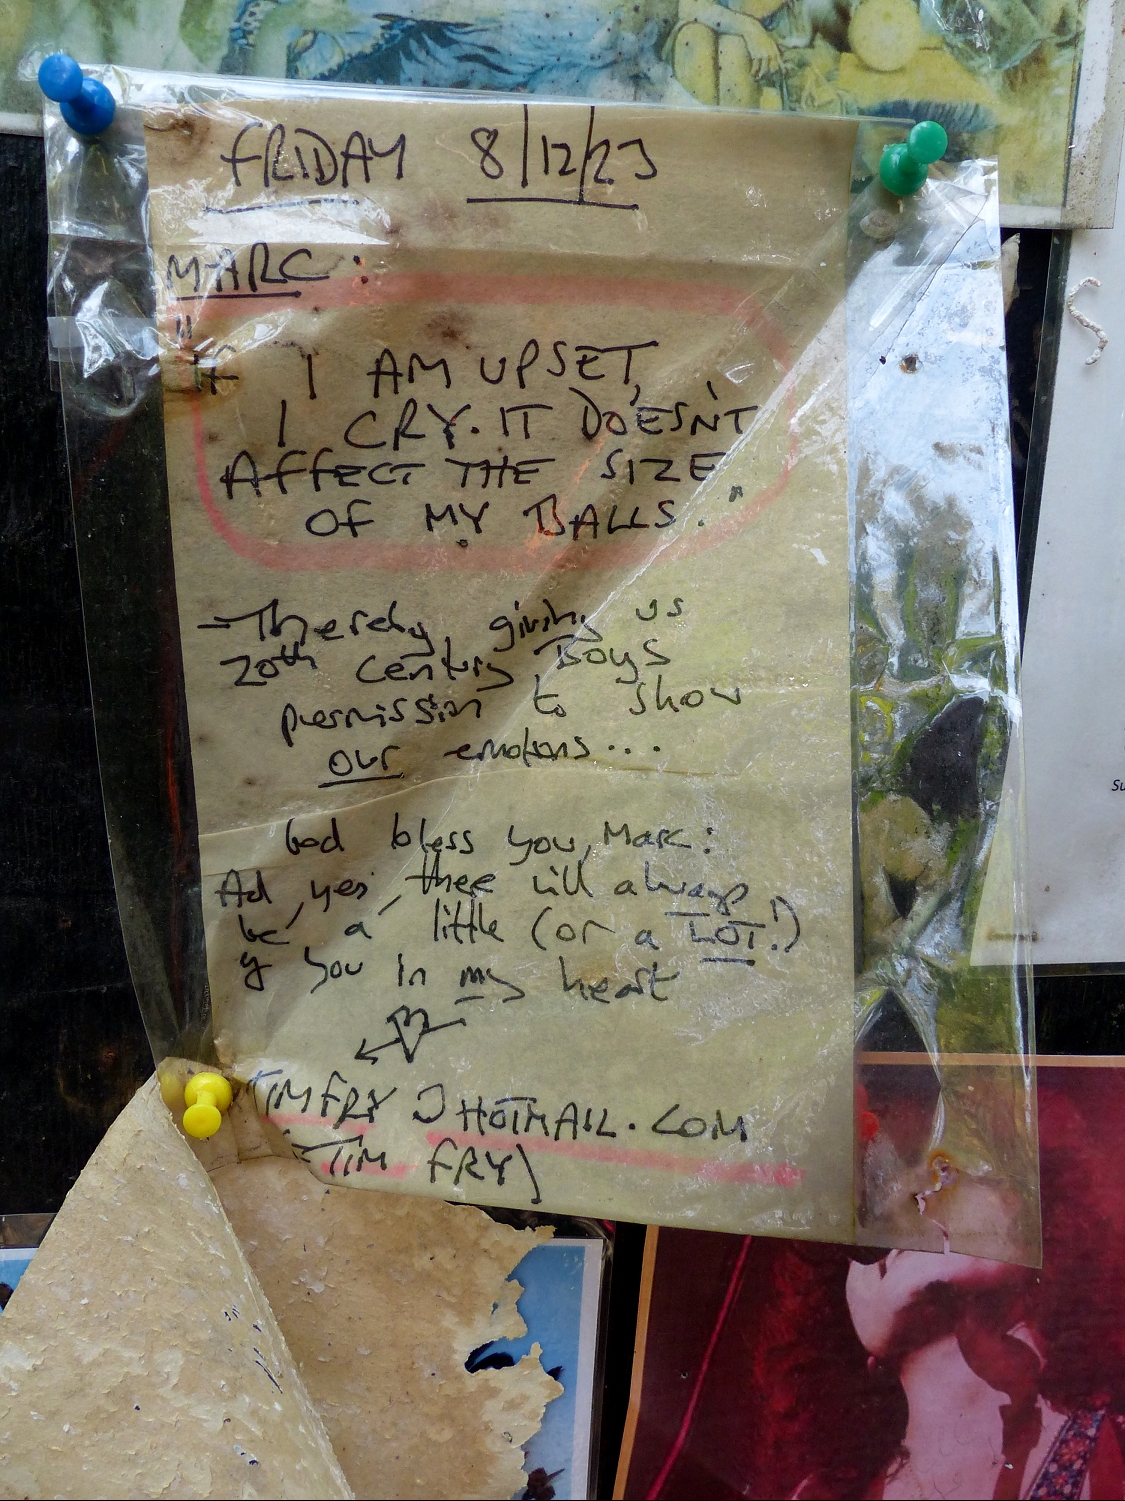 FRIDAY 8/12/23
MARC:
"IF I AM UPSET,
I CRY. IT DOESN'T
AFFECT THE SIZE
OF MY BALLS."
- Thereby giving us
20th Century Boys
permission to show
our emotions...
God bless you, Marc:
And, yes, there will always
be, a little (or a LOT!)
of you in my heart
TIMFRY @HOTMAIL.COM
(TIM FRY)
Su